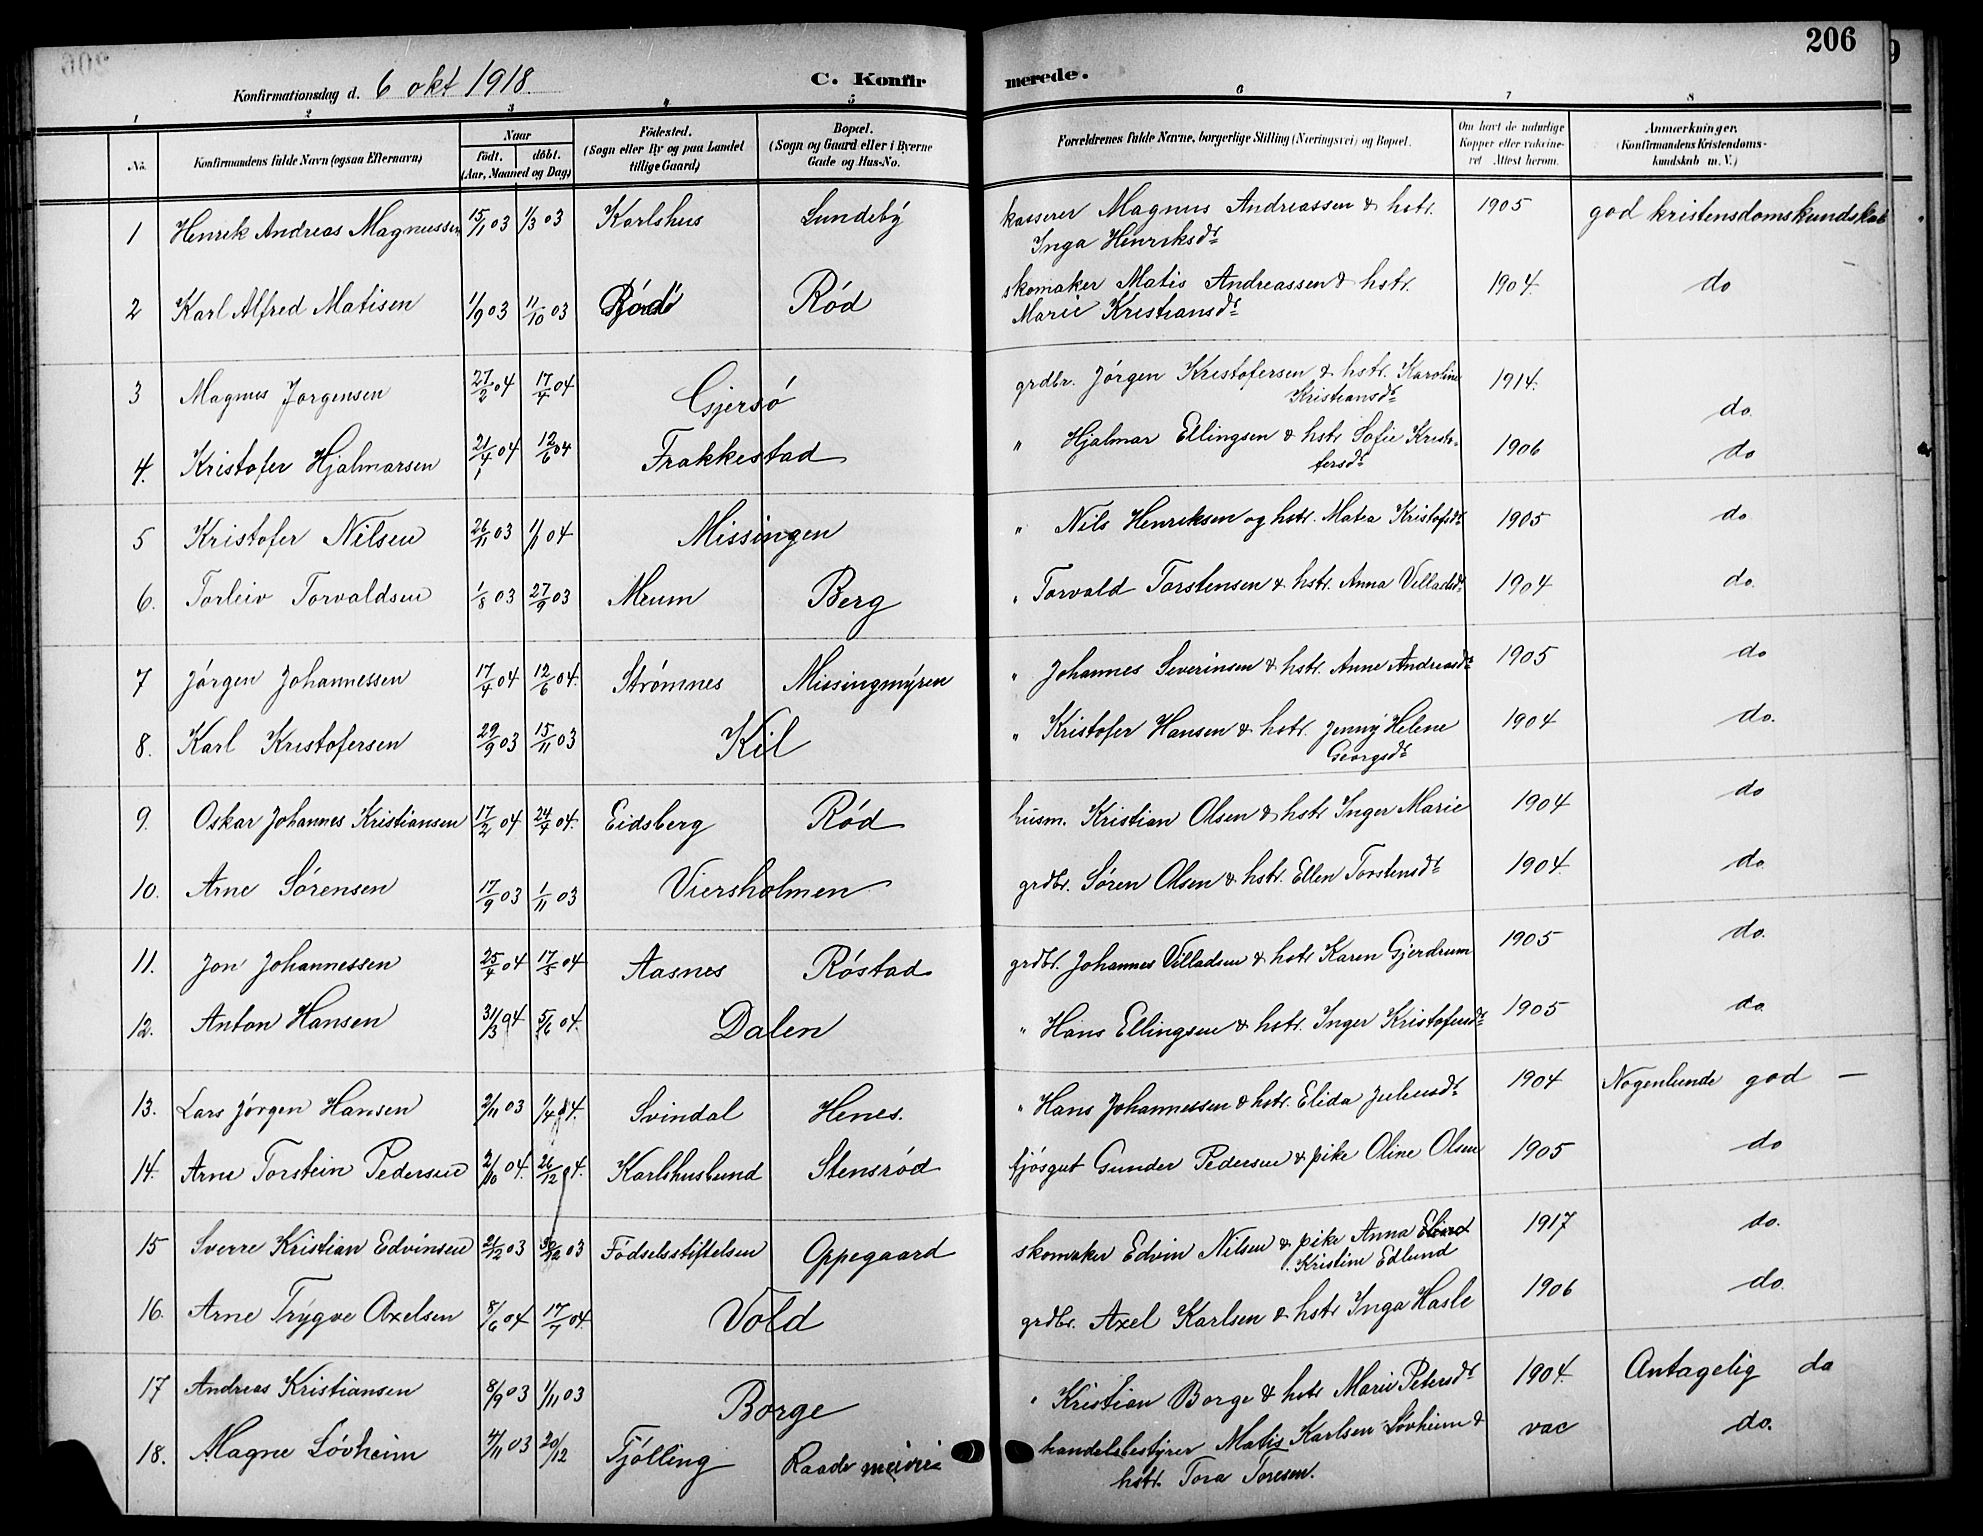 206
Konfirmationsdag d. 6 okt 1918
C. Konfirmerede.
1 2 3 4 5 6 7 8
No. Konfirmandens fulde Navn (ogsaa Efternavn) Naar født. døbt. (Aar, Maaned og Dag) Fødested. (Sogn eller By og paa Landet tillige Gaard) Bopæl. (Sogn og Gaard eller i Byerne Gade og Hus-No. Forældrenes fulde Navne, borgerlige Stilling (Næringsvei) og Bopæl. Om havt de naturlige Kopper eller vakcineret Attest herom. Anmærkninger. (Konfirmandens Kristendomskundskab m. V.)
1 Henrik Andreas Magnussen 15/1 03 1/3 03 Karlshus Lundebÿ kasserer Magnus Andreassen & hstr. 1905 god kristensdomskundskab
Inga Henriksdr
2 Karl Alfred Matisen 1/9 03 11/10 03 Rød skomaker Matis Andreassen & hstr. 1904. do
Marie Kristiansdr
3 Magnus Jørgensen 27/2 04 17/4 04 Gjersö grdbr. Jórgen Kristofersen & hstr. Karoline 1914. do.
Kristiansdr
4. Kristofer Hjalmarsen 21/4 04 12/6 04 Frakkestad " Hjalmar Ellingsen & hstr Sofie Kristo- 1906 do
fersdr
5 Kristofer Nilsen 26/11 03 1/1 04 Missingen " Nils Henriksen og hstr. Matea Kristofsdr 1905 do
6. Torleiv Torvaldsen 1/8 03 27/9 03 Mrum Berg " Torvald Torstensen & hstr. Anna Villadsdr 1904 do.
7 Jórgen Johannessen 17/4 04 12/6 04. Strømnes Missingmÿren " Johannes Severinsen & hstr. Anne Andreasdr 1905 do
8. Karl Kristofersen 29/9 03 15/11 03 Kil " Kristofer Hansen & hstr. Jennÿ Helene 1904 do.
Georgsdr
9. Oskar Johannes Kristiansen 17/2 04 24/4 04. Eidsberg Ród husm. Kristian Olsen & hstr Inger Marie 1904 do
10. Arne Sórensen 17/9 03 1/11 03 Viersholmen grdbr. Sóren Olsen & hstr. Ellen Torstensdr 1904. do
11. Jon Johannessen 25/4 04 17/5 04 Aasnes Róstad grdbr. Johannes Villadsen & hstr Karen Gjerdrum 1905 do.
12. Anton Hansen 31/3 04 5/6 04. Dalen " Hans Ellingsen & hstr. Inger Kristofersdr 1905 do.
13. Lars Jórgen Hansen 2/11 03 1/4 04. Svindal Henes. " Hans Johannessen & hstr. Elida Juliusdr 1904 Nogenlunde god —
14. Arne Torstein Pedersen 2/10 04. 26/12 04. Karlshuslund Stensród fjósgut Gunder Pedersen & pike Oline Olsen 1905 do
15 Sverre Kristian Edvinsen 2/12 03 30/12 03 Fódselsstiftelsen Oppegaard skomaker Edvin Nilsen & pike Anna 1917 do.
Kristine Edlund
16. Arne Trÿgve Axelsen 8/6 04 17/7 04. Vold grdbr. Axel Karlsen & hstr Inga Hasle 1906 do.
17 Andreas Kristiansen 8/9 03 1/11 03 Borge " Kristian Borge & hstr Marie Petersdr 1904. Antagelig do
18. Magne Lóvheim 4/11 03 20/12 Tjólling Raade meieri handelsbestÿrer Matis Karlsen Lóvheim & vac do.
hstr. Tora Toresen.